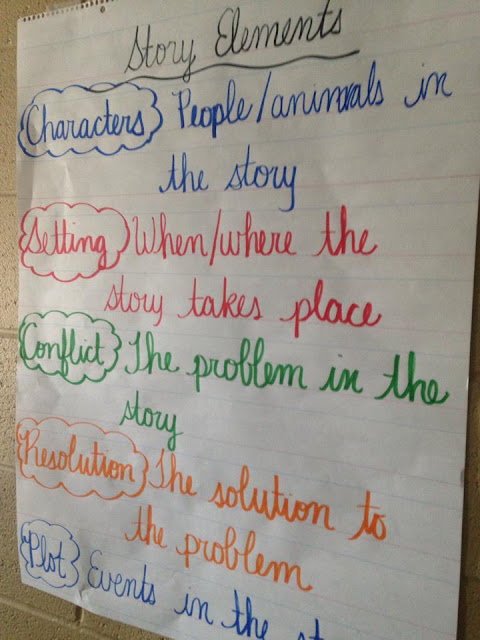 Story Elements
Characters People/animals in
the story
Setting When/where the
story takes place
Conflict The problem in the
story
Resolution The solution to
the problem
Plot Events in the